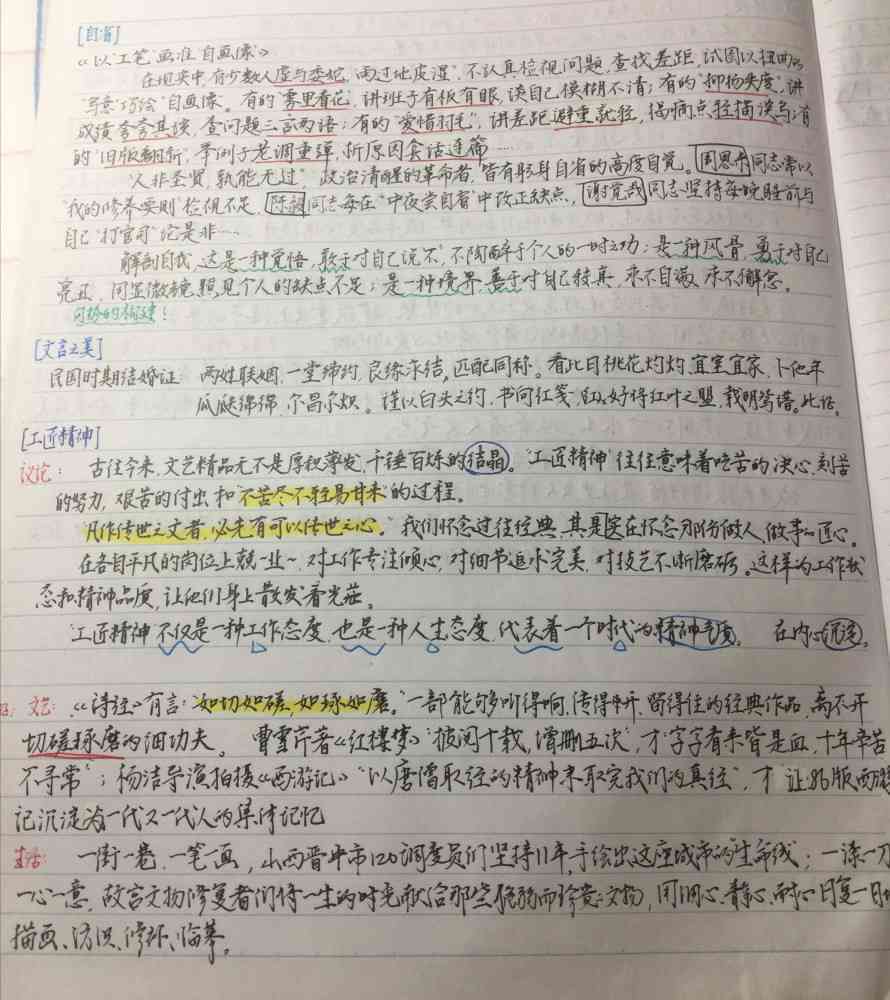 [自省]
《以"工笔"画准"自画像"》
在现实中,有少数人虚与委蛇,"雨过地皮湿",不认真检视问题,查找差距,试图以扭曲的
"写意巧绘"自画像。有的"雾里看花",讲班子有板有眼,谈自己模糊不清;有的"抑扬失度",讲
成绩夸夸其谈,查问题三言两语;有的"爱惜羽毛",讲差距避重就轻,揭痛点轻描淡写;有
的"旧版翻新",举例子老调重弹,析原因套话连篇……
"人非圣贤,孰能无过",政治清醒的革命者,皆有躬身自省的高度自觉。周恩来同志常以
"我的修养要则"检视不足,陈毅同志每在"中夜尝自省"中改正缺点,谢觉哉同志坚持每晚睡前与
自己"打官司"论是非……
解剖自我,这是一种觉悟,敢于对自己说不,不陶醉于个人的一时之功;是一种风骨,勇于对自己
亮丑,用显微镜照见个人的缺点不足;是一种境界,善于对自己较真,来不自满,来不懈怠。
[文言之美]
民国时期结婚证 两姓联姻,一堂缔约,良缘永结,匹配同称。看此日桃花灼灼,宜室宜家,卜他年
瓜瓞绵绵,尔昌尔炽。谨以白头之约,书向红笺,好将红叶之盟,载明鸳谱。此证。
[工匠精神]
议论: 古往今来,文艺精品无不是厚积薄发,千锤百炼的结晶。"工匠精神"往往意味着吃苦的决心,刻苦
的努力,艰苦的付出和"不苦尽不轻易甘来"的过程。
"凡作传世之文者,必先有可以传世之心。"我们怀念过往经典,其是实在怀念那份做人,做事的匠心。
在各自平凡的岗位上兢一业~,对工作专注倾心,对细节追求完美,对技艺不断磨砺。这样的工作状
态和精神品质,让他们身上散发着光茫。
"工匠精神"不仅是一种工作态度,也是一种人生态度,代表着一个时代的精神气质。 在内心沉淀。
文艺:《诗经》有言:"如切如磋,如琢如磨。"一部能够叫得响,传得开,留得住的经典作品,离不开
切磋琢磨的细功夫。曹雪芹著《红楼梦》"披阅十载,增删五次",才"字字看来皆是血,十年辛苦
不寻常";杨洁导演拍摄《西游记》"以唐僧取经的精神来取完我们的真经",才让86版西游
记沉淀为一代又一代人的集体记忆
生活: 一街一巷,一笔一画,山西晋中市120调度员们坚持11年,手绘出这座城市的生命线;一漆一刀
一心一意,故宫文物修复者们将一生的时光献给那些脆弱而珍贵文物,用细心、静心、耐心日复一日的
描画、仿织、修补、临摹。